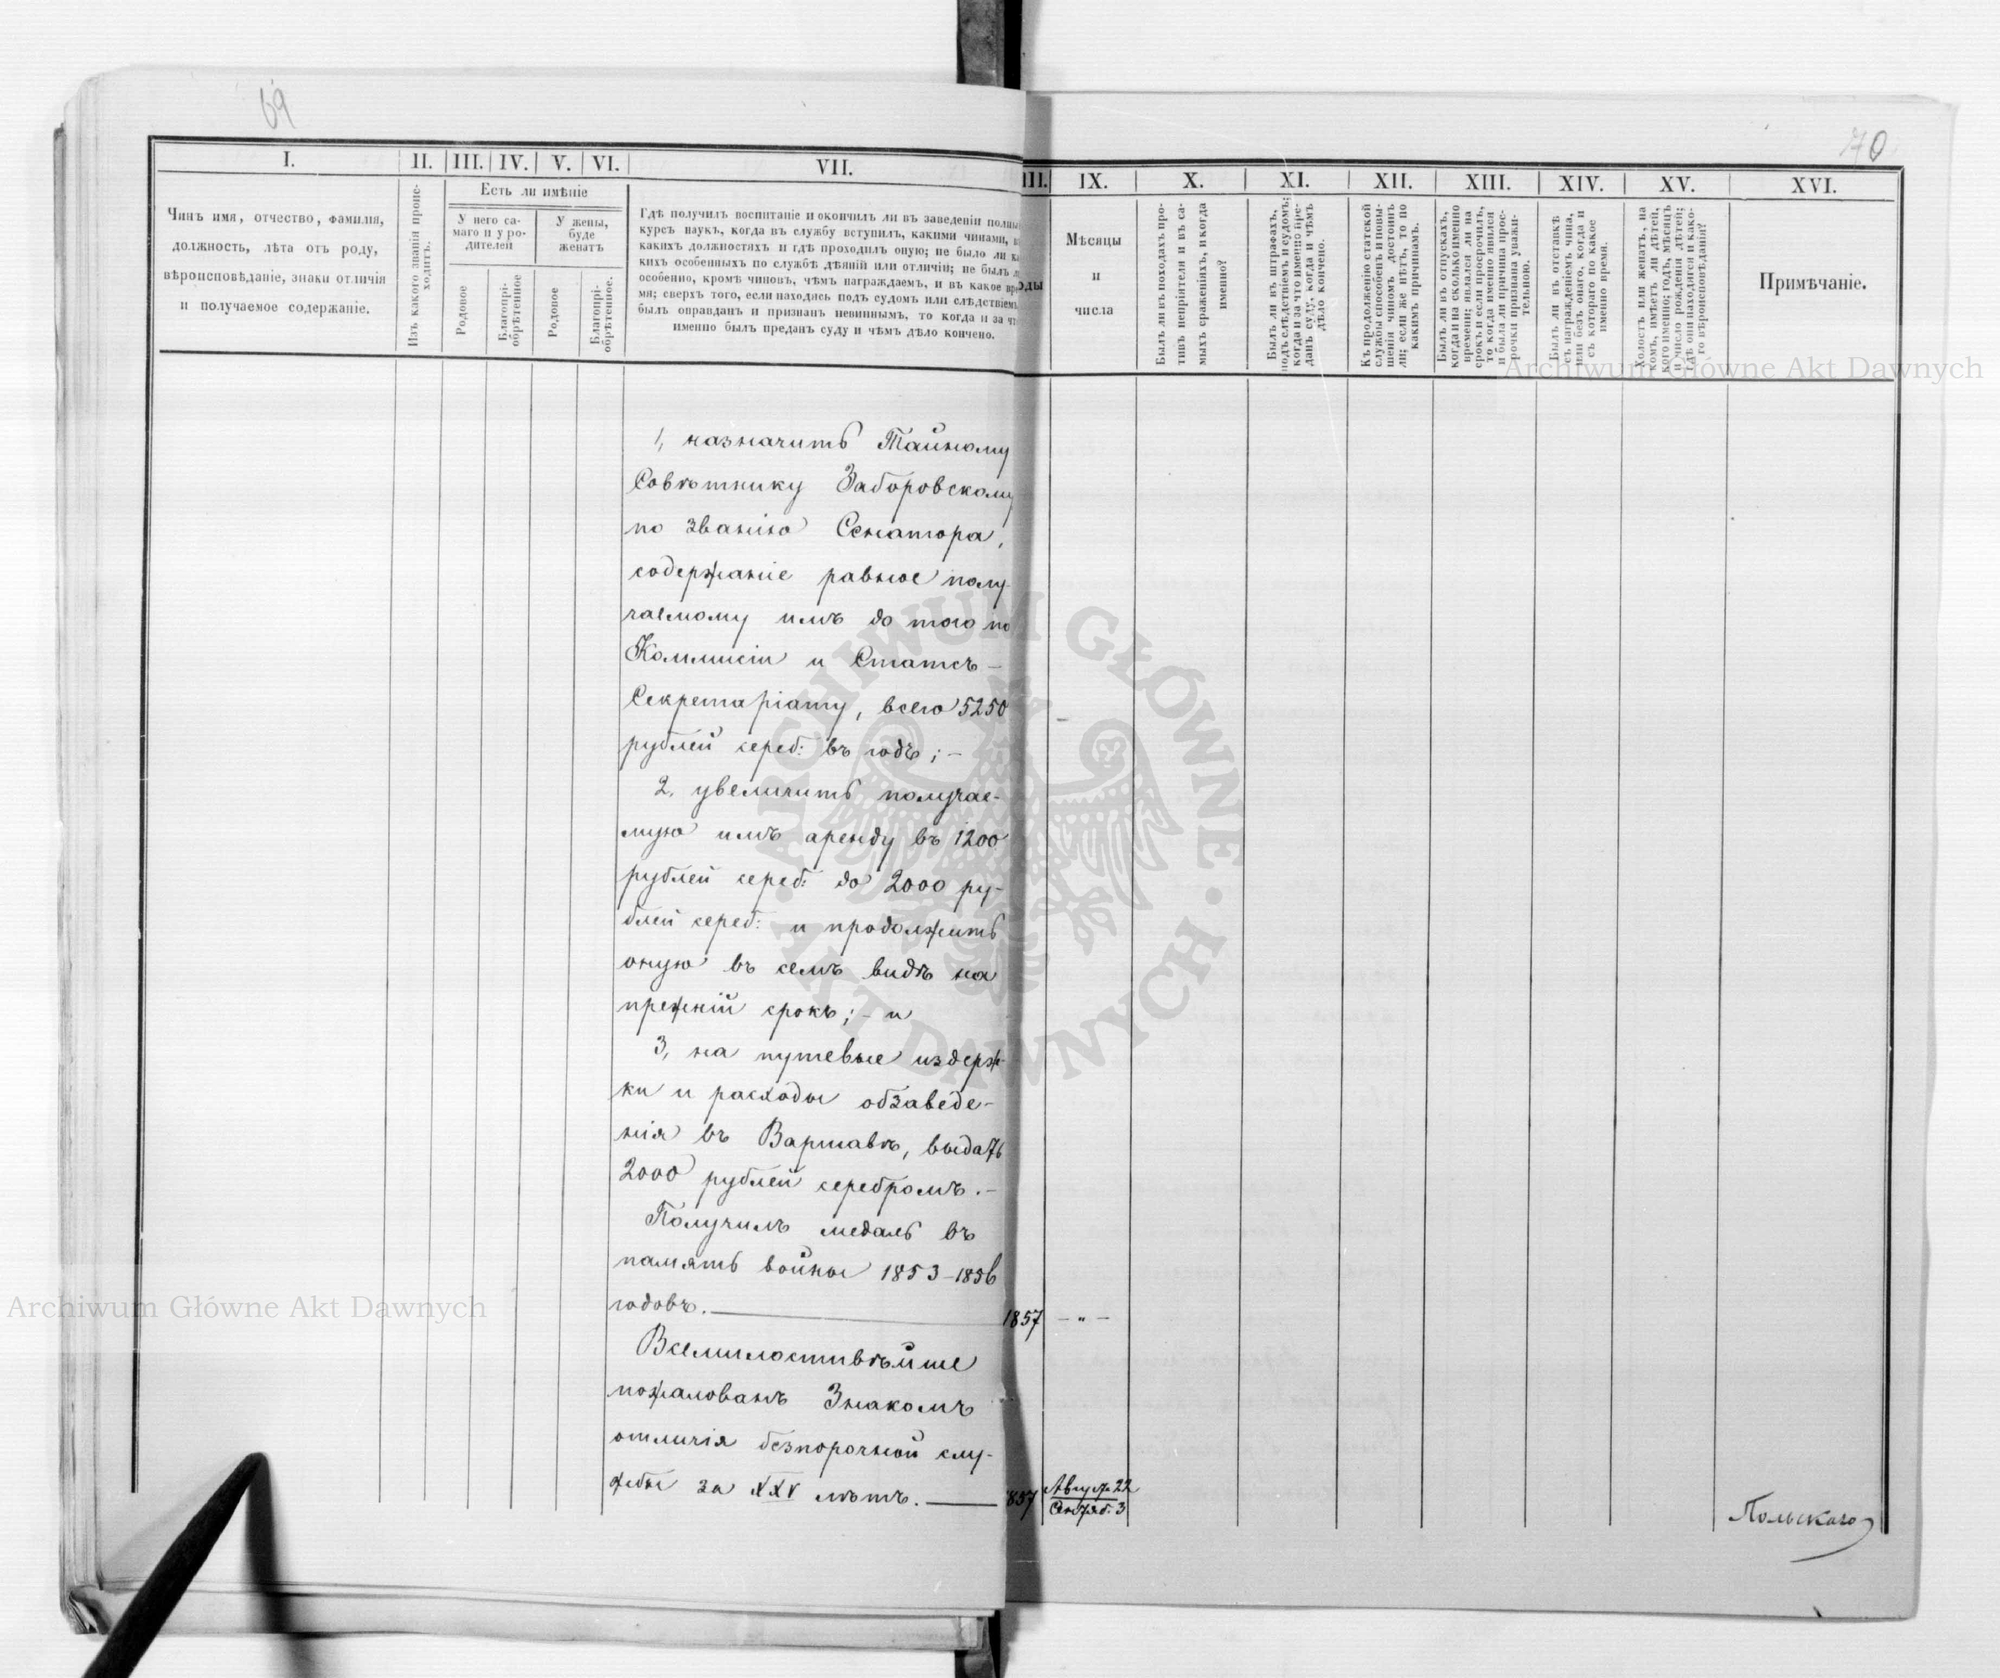 69
70
I.
II.
III.
IV.
V.
VI.
VII.
III.
IX.
X.
XI.
XII.
XIII.
XIV.
XV.
XVI.
Чинъ имя, отчество, фамилія,
должность, лѣта отъ роду,
вѣроисповѣданіе, знаки отличія
и получаемое содержаніе.
Изъ какого званія проис-
ходитъ.
Есть ли имѣніе
У него са-
маго и у ро-
дителей
У жены,
буде
женатъ
Родовое
Благопрі-
обрѣтенное
Родовое
Благопрі-
обрѣтенное.
Гдѣ получилъ воспитаніе и окончилъ ли въ заведеніи полный
курсъ наукъ, когда въ службу вступилъ, какими чинами, въ
какихъ должностяхъ и гдѣ проходилъ оную; не было ли ка
кихъ особенныхъ по службѣ дѣяній или отличій; не былъ ли
особенно, кромѣ чиновъ, чѣмъ награждаемъ, и въ какое вре
мя; сверхъ того, если находясь подъ судомъ или слѣдствіемъ
былъ оправданъ и признанъ невиннымъ, то когда и за что
именно былъ преданъ суду и чѣмъ дѣло кончено.
оды
Мѣсяцы
и
числа
Былъ ли въ походахъ про-
тивъ непріятеля и въ са-
мыхъ сраженіяхъ, и когда
именно?
Былъ ли въ штрафахъ,
подъ слѣдствіемъ и судомъ;
когда и за что именно пре-
данъ суду, когда и чѣмъ
дѣло кончено.
Къ продолженію статской
службы способенъ и повы-
шенія чиномъ достоинъ
ли; если же нѣтъ, то по
какимъ причинамъ.
Былъ ли въ отпускахъ,
когда и на сколько именно
времени; явился ли на
срокъ и если просрочилъ,
то когда именно явился
и была ли причина прос-
рочки признана уважи-
тельною.
Былъ ли въ отставкѣ
съ награжденіемъ чина,
или безъ онаго, когда и
съ котораго по какое
именно время.
Холостъ или женатъ, на
комъ, имѣетъ ли дѣтей,
кого именно; годъ, мѣсяцъ
и число рожденія дѣтей;
гдѣ они находятся и како-
го вѣроисповѣданія?
Примѣчаніе.
Archiwum Główne Akt Dawnych
1, назначить Тайному
Совѣтнику Заборовскому
по званію Сенатора,
содержаніе равное полу-
чаемому имъ до того по
Коммисіи и Статсъ-
Секретаріату, всего 5250
рублей сереб: въ годъ; -
2, увеличить получае-
мую имъ аренду въ 1200
рублей сереб: до 2000 ру-
блей сереб: и продолжить
оную въ семъ видѣ на
прежній срокъ; - и
3, на путевые издерж-
ки и расходы обзаведе-
нія въ Варшавѣ, выдать
2000 рублей серебромъ. -
Получилъ медаль въ
память войны 1853-1856
годовъ. 1857 - „ -
Всемилостивѣйше
пожалованъ Знакомъ
отличія безпорочной слу-
жбы за XXV лѣтъ. 1857 Август. 22
Сентяб. 3
Польскаго
ARCHIWUM GŁÓWNE AKT DAWNYCH
Archiwum Główne Akt Dawnych